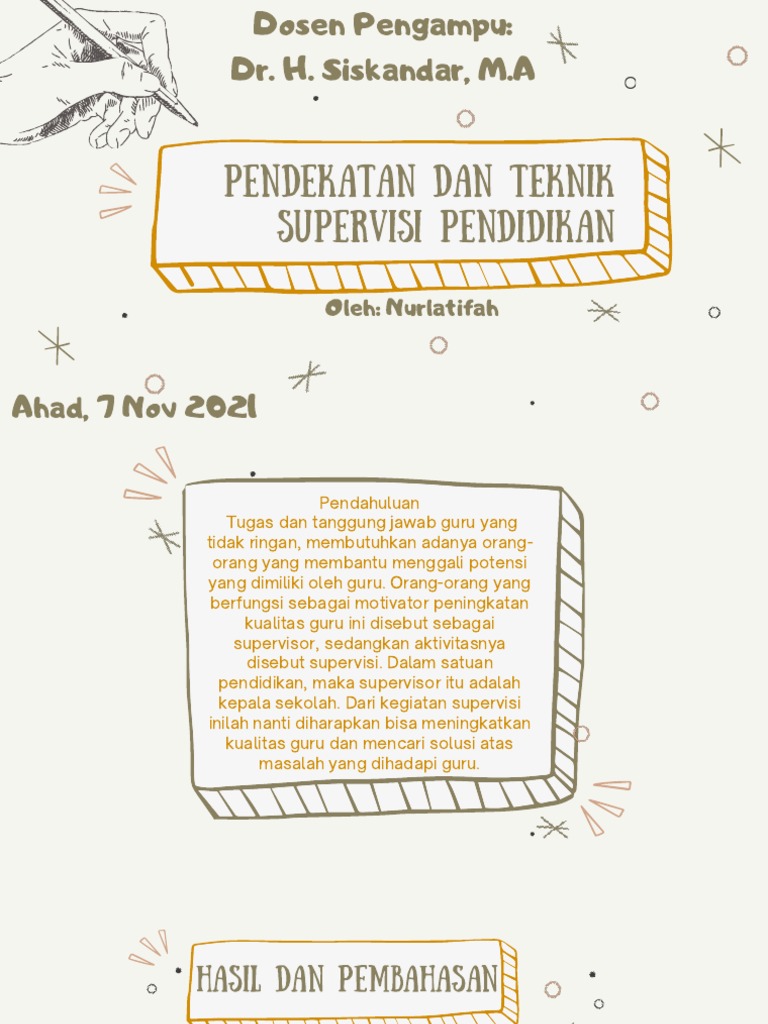 Dosen Pengampu:
Dr. H. Siskandar, M.A
PENDEKATAN DAN TEKNIK
SUPERVISI PENDIDIKAN
Oleh: Nurlatifah
Ahad, 7 Nov 2021
Pendahuluan
Tugas dan tanggung jawab guru yang
tidak ringan, membutuhkan adanya orang-
orang yang membantu menggali potensi
yang dimiliki oleh guru. Orang-orang yang
berfungsi sebagai motivator peningkatan
kualitas guru ini disebut sebagai
supervisor, sedangkan aktivitasnya
disebut supervisi. Dalam satuan
pendidikan, maka supervisor itu adalah
kepala sekolah. Dari kegiatan supervisi
inilah nanti diharapkan bisa meningkatkan
kualitas guru dan mencari solusi atas
masalah yang dihadapi guru.
HASIL DAN PEMBAHASAN